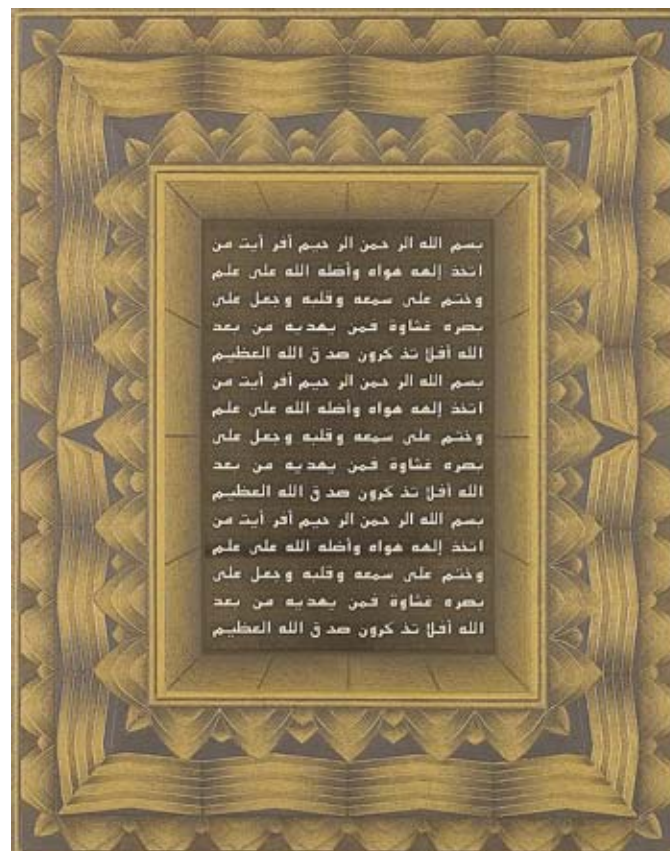 بسم الله الر حمن الر حيم أفر أيت من
اتخذ إلهه هواه وأضله الله على علم
وختم على سمعه وقلبه وجعل على
بصره غشاوة فمن يهديه من بعد
الله أفلا تذ كرون صد ق الله العظيم
بسم الله الر حمن الر حيم أفر أيت من
اتخذ إلهه هواه وأضله الله على علم
وختم على سمعه وقلبه وجعل على
بصره غشاوة فمن يهديه من بعد
الله أفلا تذ كرون صد ق الله العظيم
بسم الله الر حمن الر حيم أفر أيت من
اتخذ إلهه هواه وأضله الله على علم
وختم على سمعه وقلبه وجعل على
بصره غشاوة فمن يهديه من بعد
الله أفلا تذ كرون صد ق الله العظيم